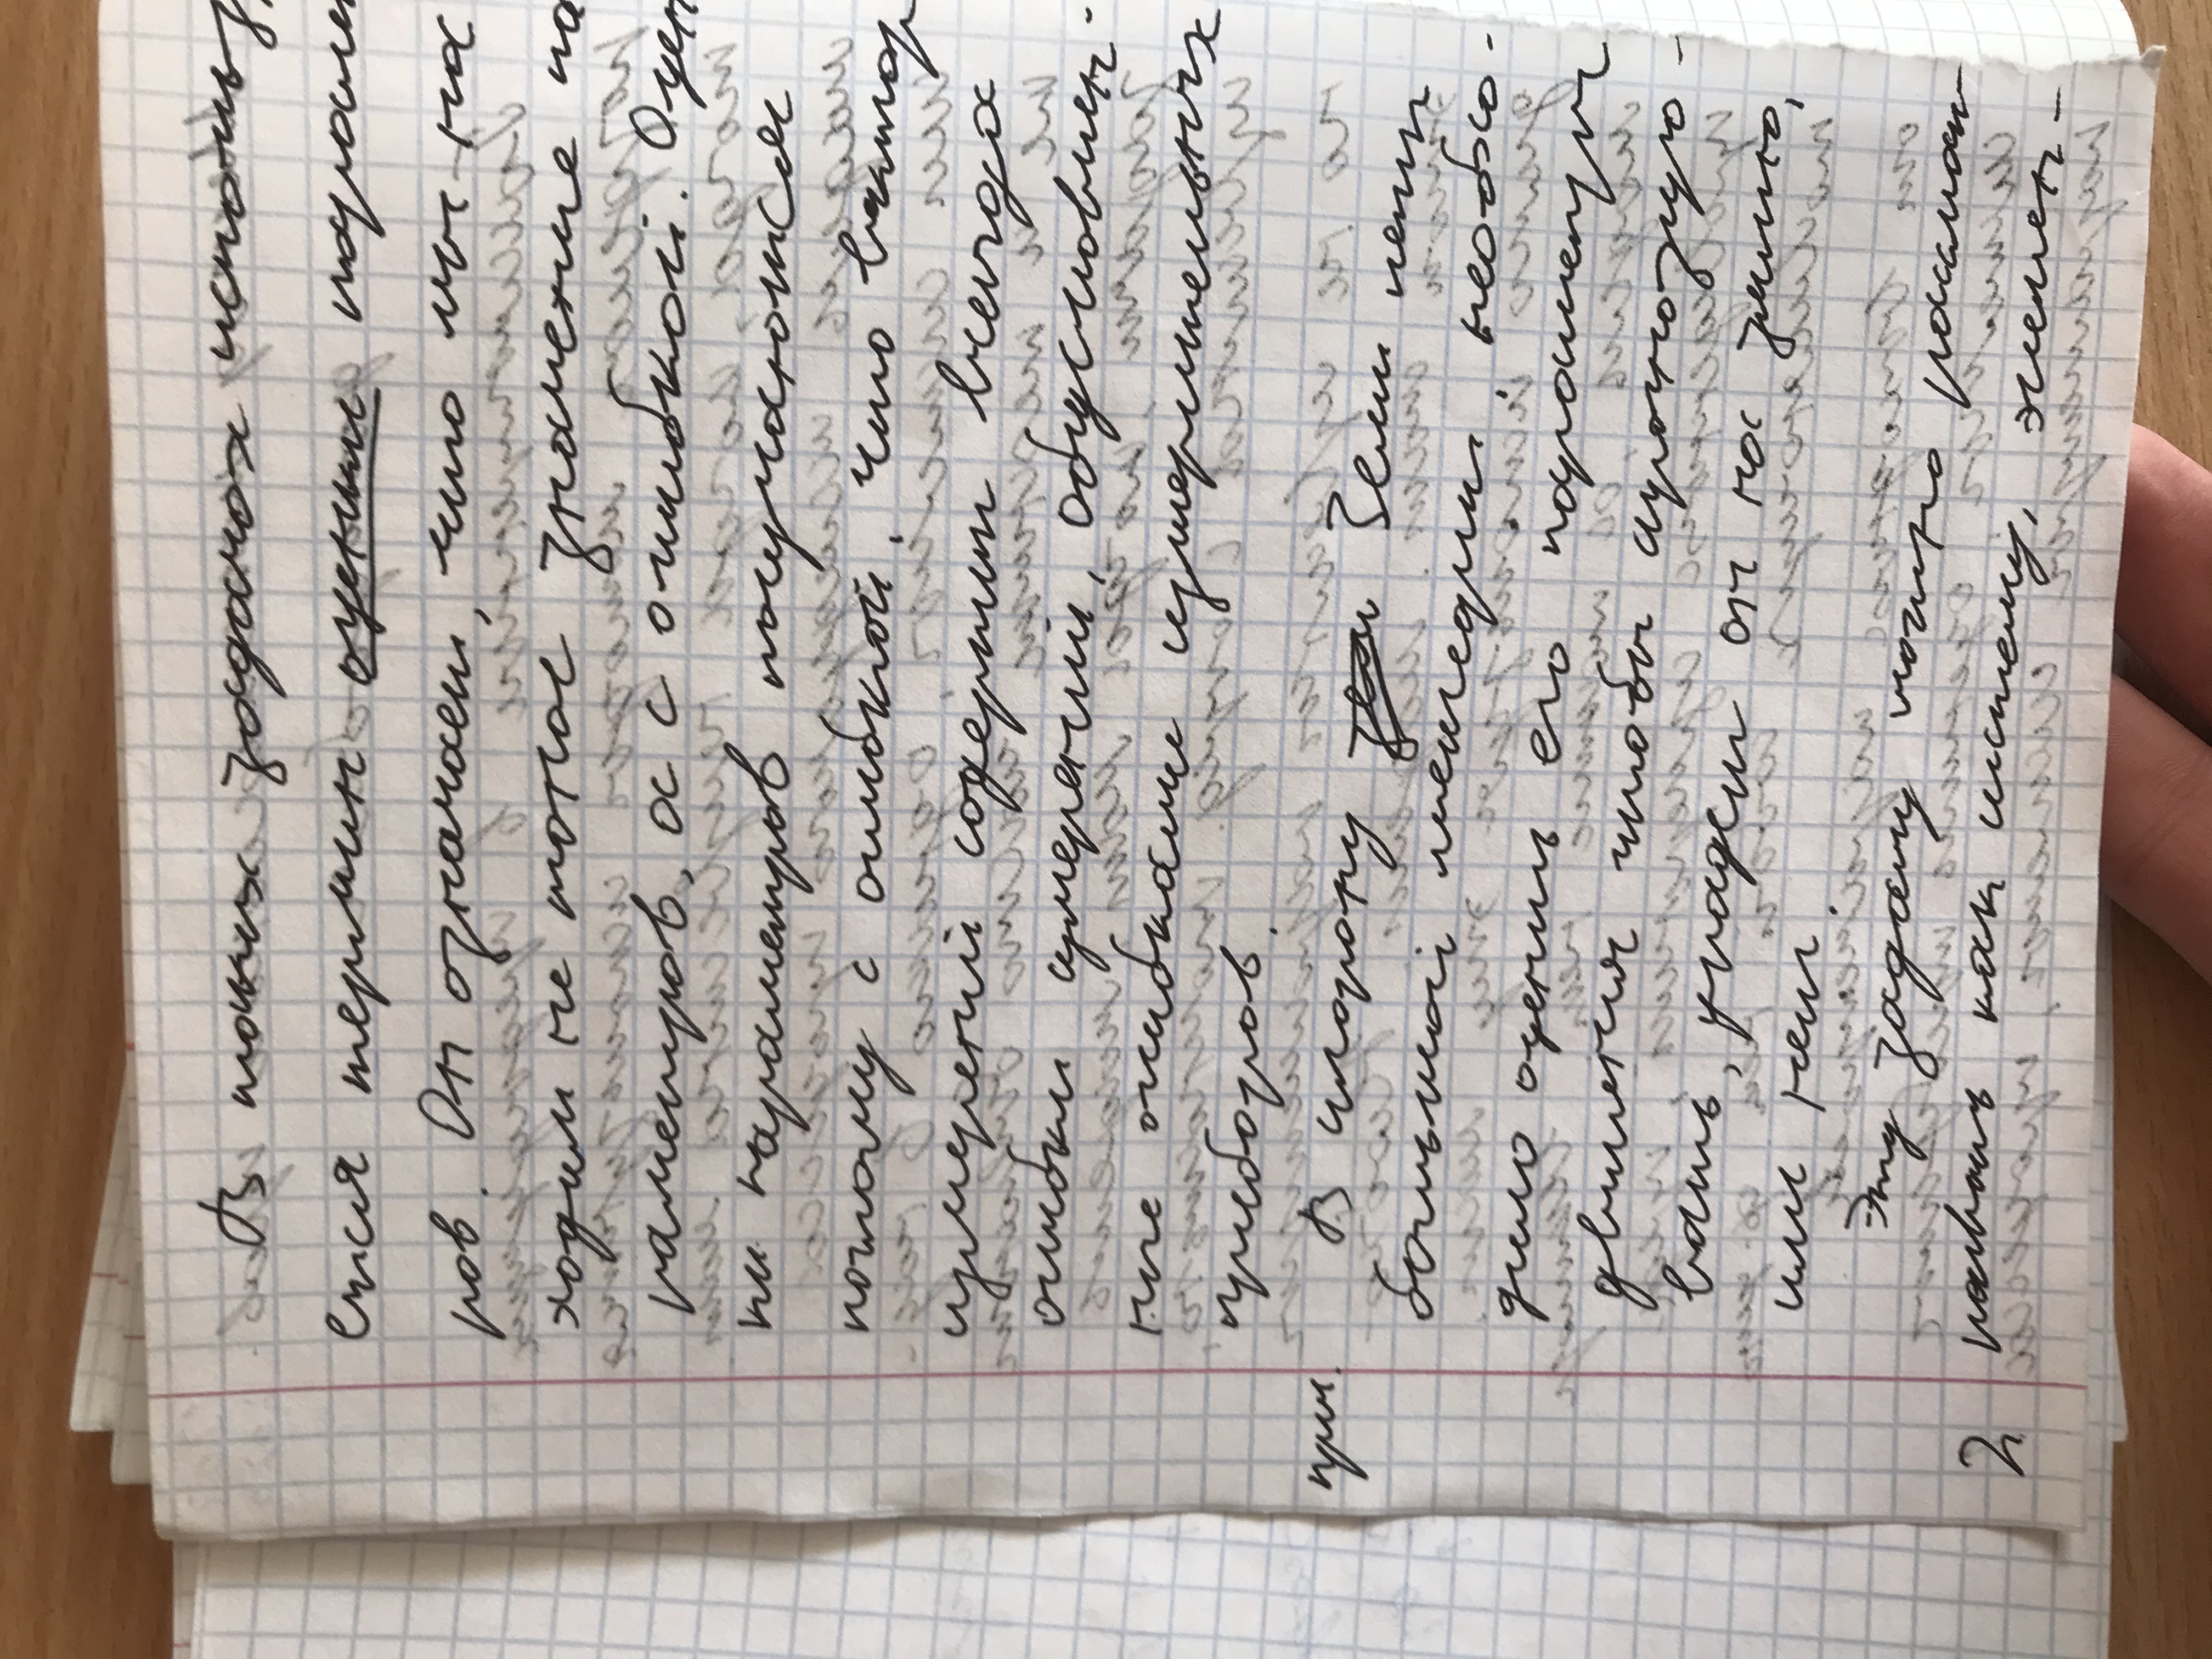 В таких задачах использу
ется термин оценки парамет
ров. Он означает, что мы на
ходим не точное значение па
раметров, а с ошибкой. Оцен
ки параметров получаются
потому с ошибкой, что вектор
измерений содержит всегда
ошибки измерений, обусловлен-
ные ошибками измерительных
приборов.
прим. В сторону Земли летит
большой метеорит, необхо-
димо оценить его параметры
движения чтобы спрогнозиро-
вать, упадет он на землю,
или нет.
Эту задачу можно рассмат-
2 ривать как систему, элемен-